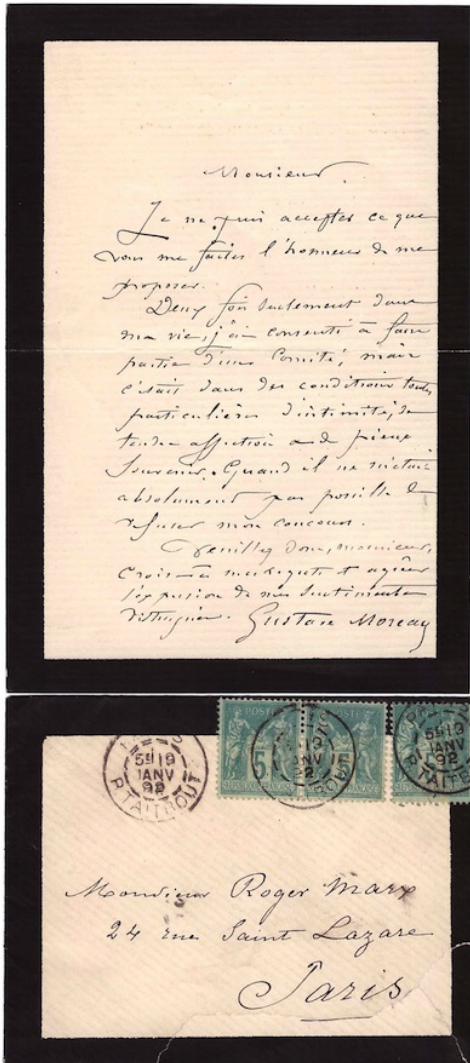 Monsieur.
Je ne puis accepter ce que
vous me faites l'honneur de me
proposer.
Deux fois seulement dans
ma vie, j'ai consenti à faire
partie d'un Comité, mais
c'était dans des conditions toutes
particulières d'intimité, de
tendre affection et de pieux
Souvenir. Quand il ne m'était
absolument pas possible de
refuser mon concours.
Veuillez donc, monsieur,
croire à mes regrets et agréer
l'expression de mes sentiments
distingués. Gustave Moreau
5E 19
JANV
92
R. TAITBOUT
POSTES
5
REPUBLIQUE FRANÇAISE
19
JANV
92
REPUBLIQUE FRANÇAISE
5E 19
JANV
92
R. TAITB
Monsieur Roger Marx
24 rue Saint Lazare
Paris